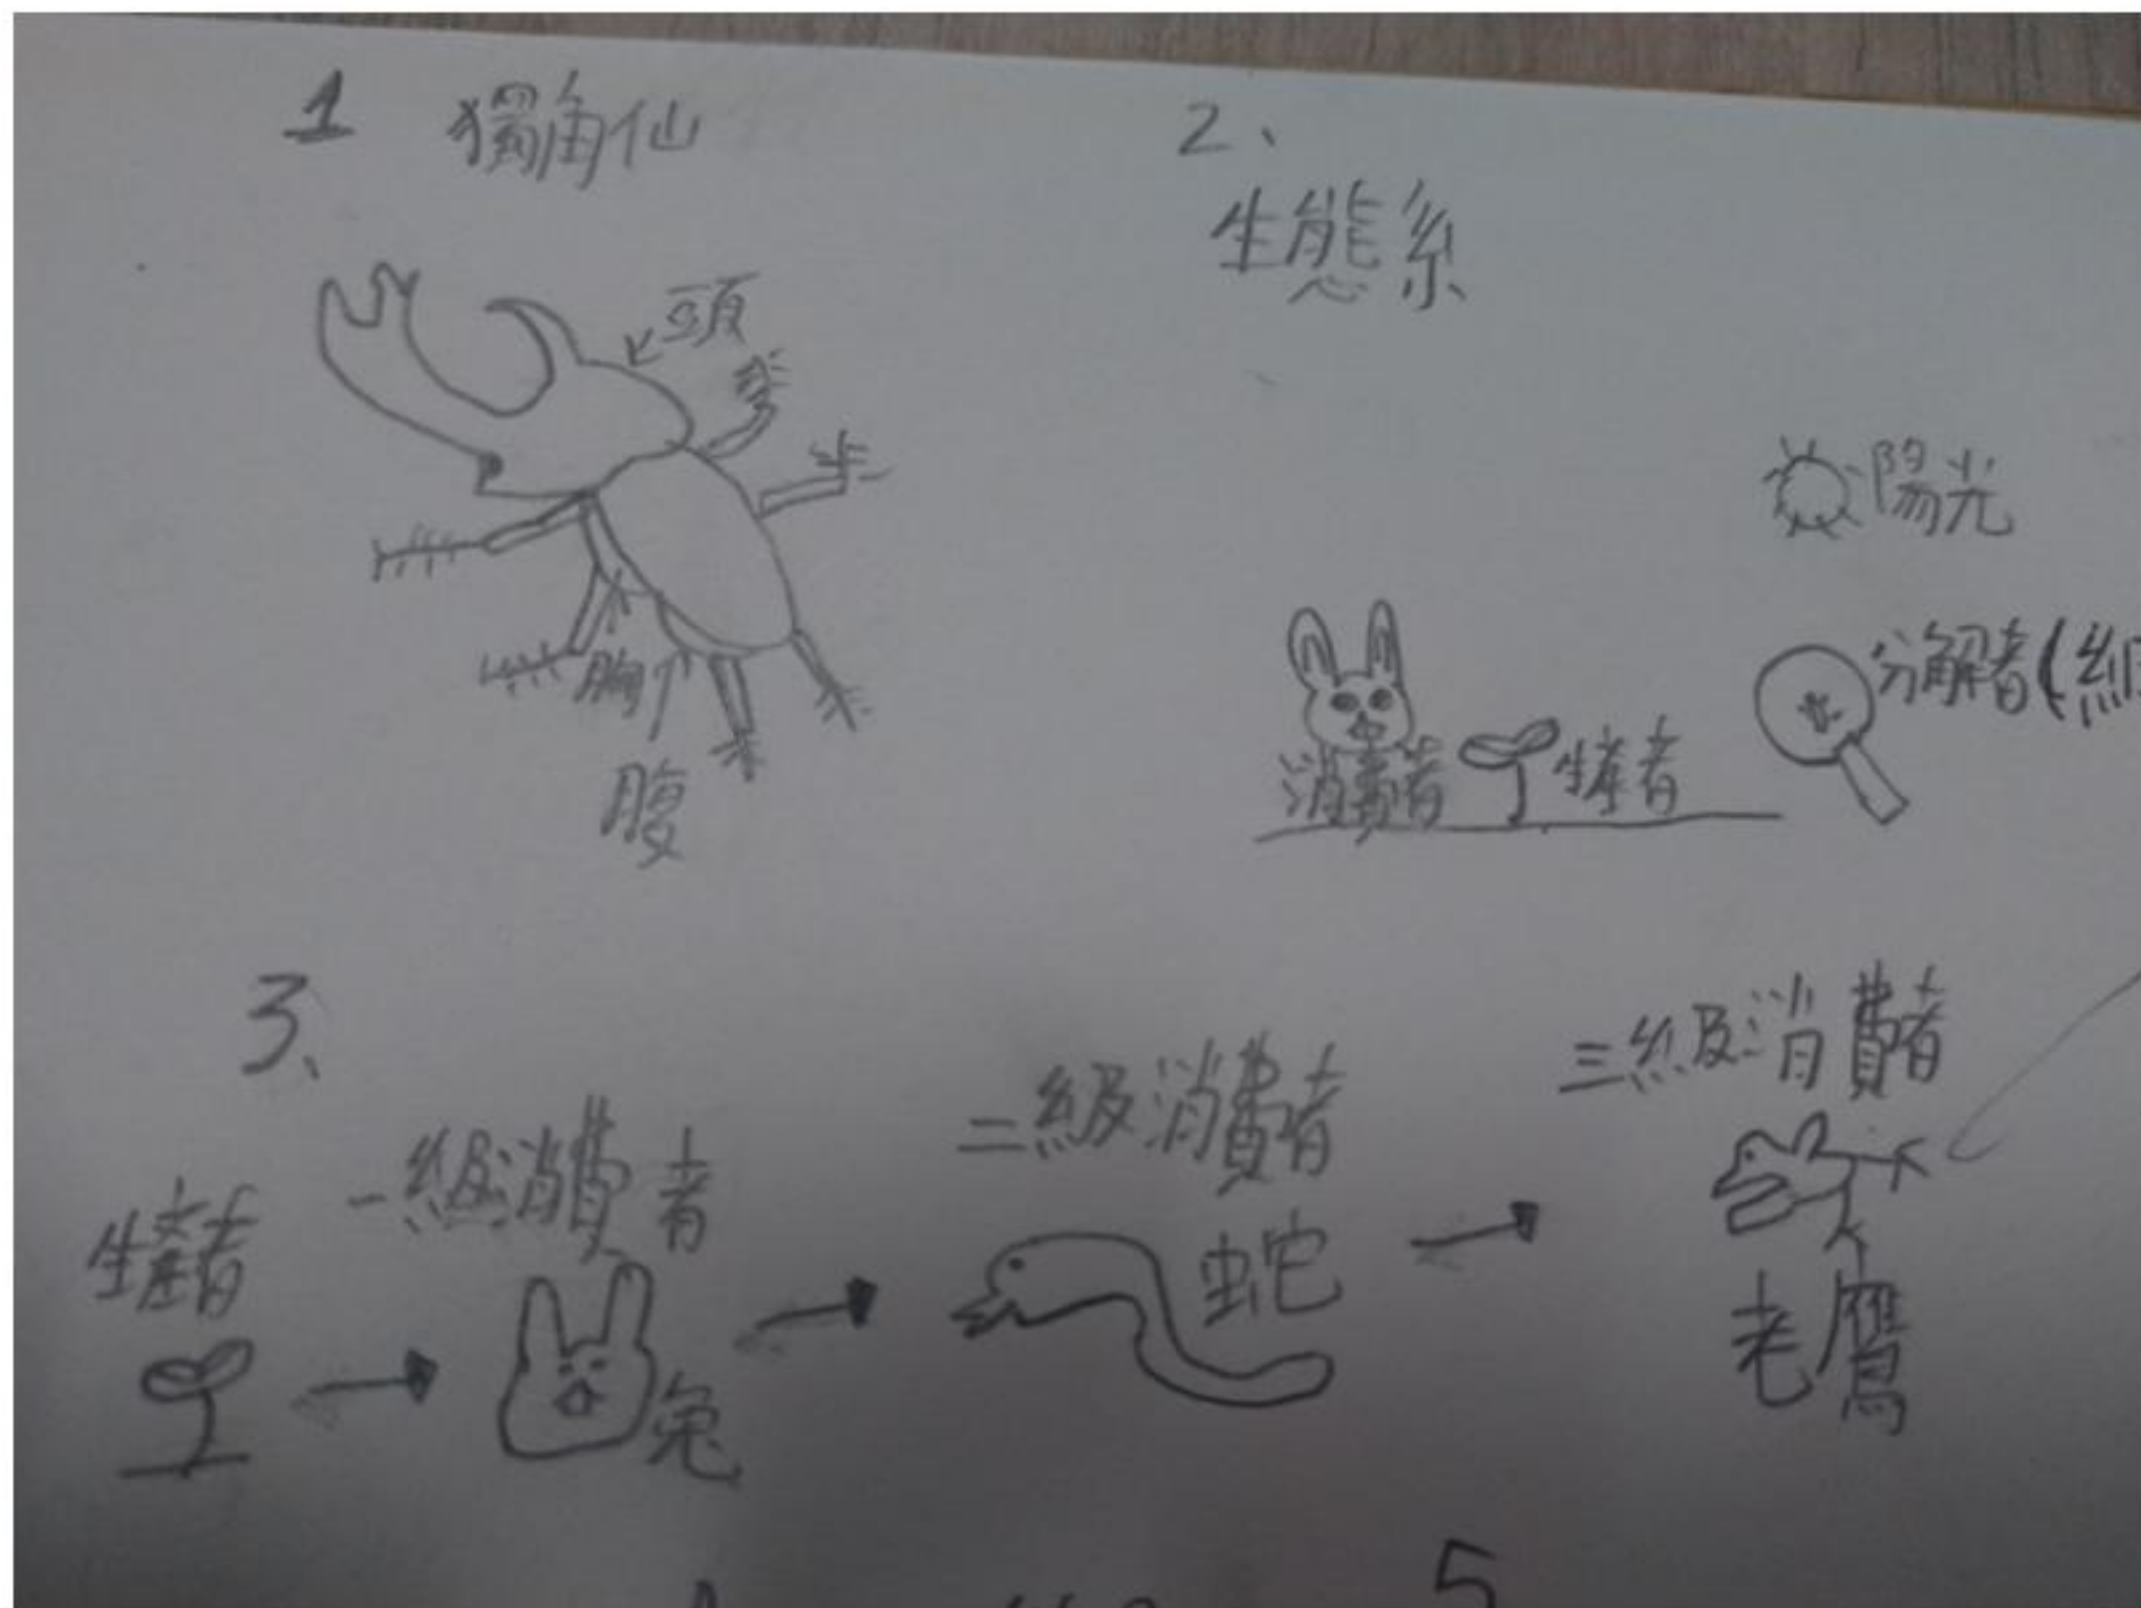 1 獨角仙
頭
胸
腹
2、
生態系
陽光
分解者(
消費者
生產者
3、
生產者
一級消費者
兔
二級消費者
蛇
三級消費者
老鷹
5